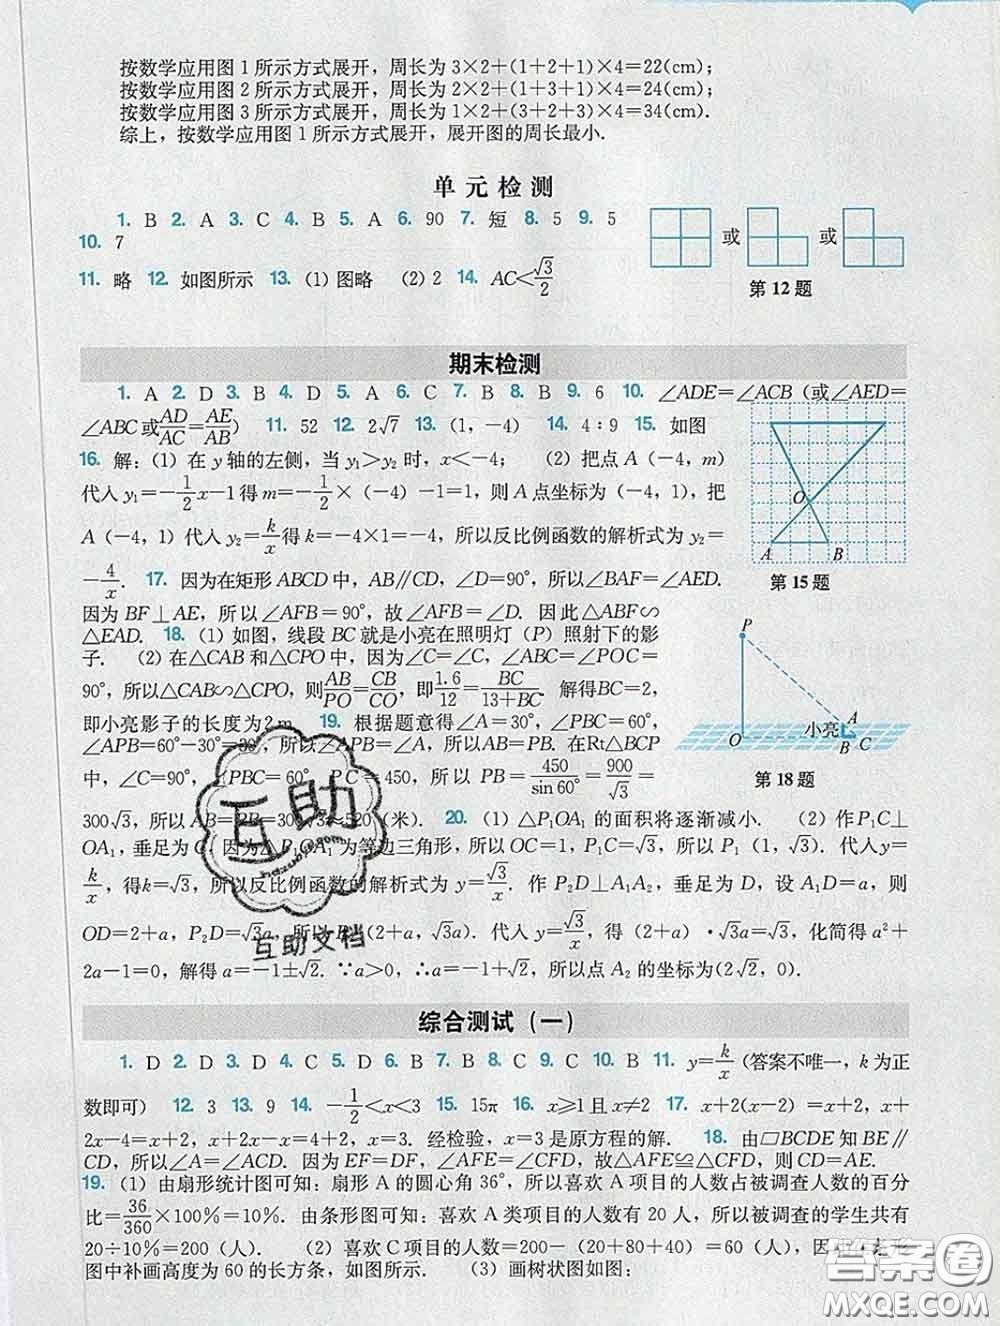 按数学应用图 1 所示方式展开，周长为 3×2＋(1＋2＋1)×4＝22(cm)；
按数学应用图 2 所示方式展开，周长为 2×2＋(1＋3＋1)×4＝24(cm)；
按数学应用图 3 所示方式展开，周长为 1×2＋(3＋2＋3)×4＝34(cm)．
综上，按数学应用图 1 所示方式展开，展开图的周长最小．
单元检测
1. B 2. A 3. C 4. B 5. A 6. 90 7. 短 8. 5 9. 5
10. 7
11. 略 12. 如图所示 13. (1) 图略 (2) 2 14. AC＜√3/2
或 或
第 12 题
期末检测
1. A 2. D 3. B 4. D 5. A 6. C 7. B 8. B 9. 6 10. ∠ADE＝∠ACB（或∠AED＝
∠ABC或AD/AC＝AE/AB） 11. 52 12. 2√7 13. (1，－4) 14. 4∶9 15. 如图
16. 解：(1) 在 y 轴的左侧，当 y₁＞y₂ 时，x＜－4； (2) 把点 A（－4，m）
代入 y₁＝－1/2x－1得 m＝－1/2×（－4）－1＝1，则 A 点坐标为（－4，1），把
A（－4，1）代入 y₂＝k/x得 k＝－4×1＝－4，所以反比例函数的解析式为 y₂＝
－4/x． 17. 因为在矩形 ABCD 中，AB∥CD，∠D＝90°，所以∠BAF＝∠AED．
因为 BF⊥AE，所以∠AFB＝90°，故∠AFB＝∠D．因此△ABF∽
△EAD. 18. (1) 如图，线段 BC 就是小亮在照明灯（P）照射下的影
子． (2) 在△CAB 和△CPO 中，因为∠C＝∠C，∠ABC＝∠POC＝
90°，所以△CAB∽△CPO，则AB/PO＝CB/CO，即1.6/12＝BC/(13＋BC)．解得BC＝2，
即小亮影子的长度为2 m． 19. 根据题意得∠A＝30°，∠PBC＝60°，
∠APB＝60°－30°＝30°，所以∠APB＝∠A，所以AB＝PB．在Rt△BCP
中，∠C＝90°，∠PBC＝60°，PC＝450，所以 PB＝450/sin60°＝900/√3＝
300√3，所以 AB＝PB＝300√3≈520（米）． 20. (1) △P₁OA₁ 的面积将逐渐减小． (2) 作 P₁C⊥
OA₁，垂足为 C，因为△P₁OA₁ 为等边三角形，所以 OC＝1，P₁C＝√3，所以 P₁（1，√3）．代入y＝
k/x，得k＝√3，所以反比例函数的解析式为 y＝√3/x．作 P₂D⊥A₁A₂，垂足为 D，设 A₁D＝a，则
OD＝2＋a，P₂D＝√3a，所以P₂（2＋a，√3a）．代入 y＝√3/x，得（2＋a）·√3a＝√3，化简得 a²＋
2a－1＝0，解得 a＝－1±√2．∵a＞0，∴a＝－1＋√2，所以点 A₂ 的坐标为（2√2，0）．
A B O
第 15 题
P O 小亮 A B C
第 18 题
综合测试（一）
1. D 2. D 3. D 4. C 5. D 6. B 7. B 8. C 9. C 10. B 11. y＝k/x（答案不唯一，k 为正
数即可） 12. 3 13. 9 14. －1/2＜x＜3 15. 15π 16. x≥1 且 x≠2 17. x＋2(x－2)＝x＋2，x＋
2x－4＝x＋2，x＋2x－x＝4＋2，x＝3．经检验，x＝3 是原方程的解． 18. 由▱BCDE 知 BE∥
CD，所以∠A＝∠ACD．因为 EF＝DF，∠AFE＝∠CFD，故△AFE≌△CFD，故 CD＝AE．
19. (1) 由扇形统计图可知：扇形 A 的圆心角 36°，所以喜欢 A 项目的人数占被调查人数的百分
比＝36/360×100％＝10％．由条形图可知：喜欢 A 类项目的人数有 20 人，所以被调查的学生共有
20÷10％＝200（人）． (2) 喜欢 C 项目的人数＝200－（20＋80＋40）＝60（人），因
图中补画高度为 60 的长方条，如图所示． (3) 画树状图如图：
互助
互助文档
答案卷
MXQE.COM